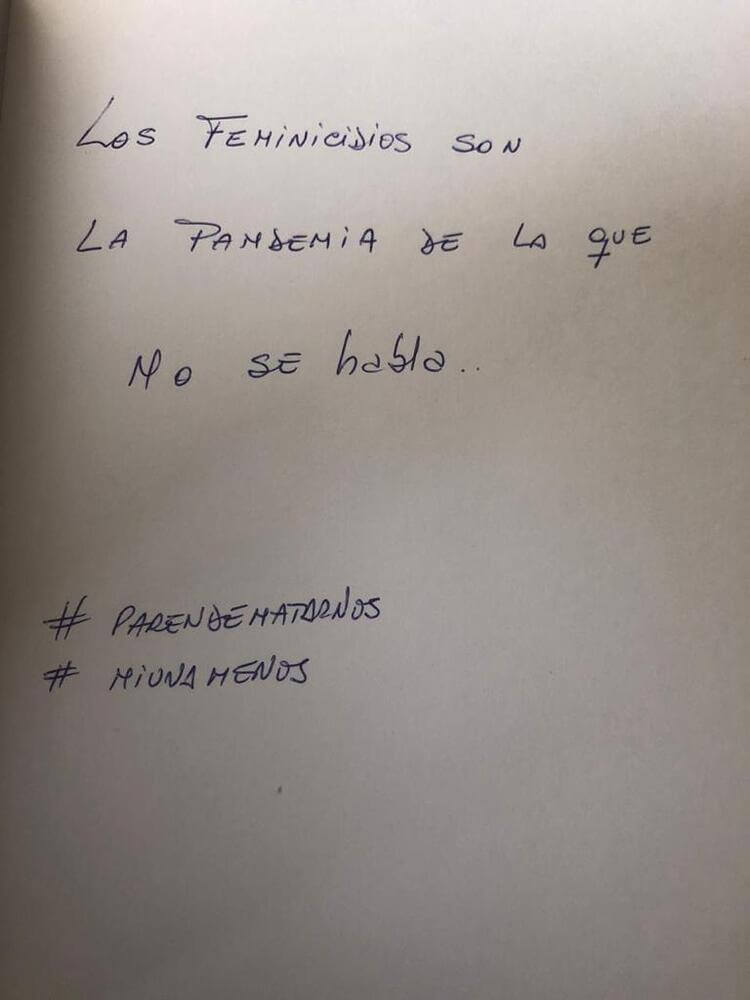 Los Feminicidios son
La Pandemia de la que
No se habla..
# PARENDEMATARNOS
# NIUNAMENOS